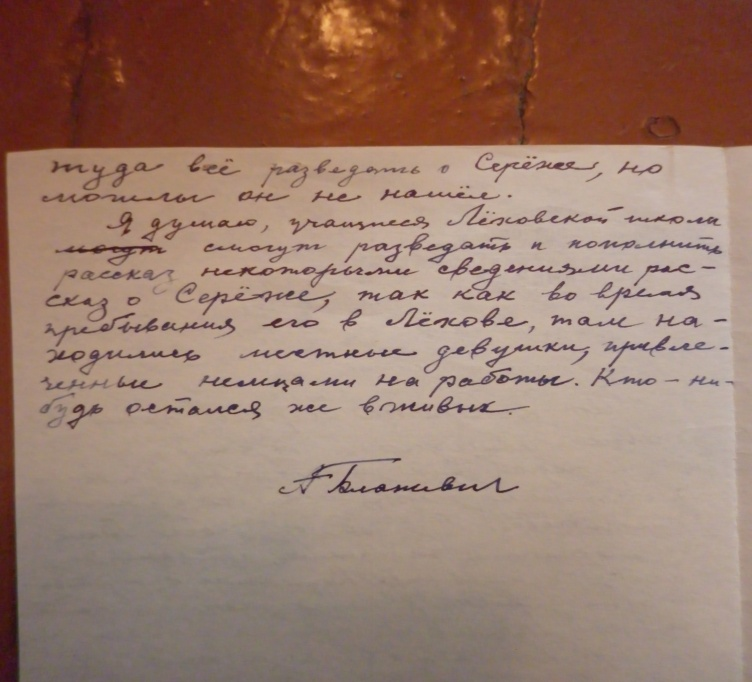 туда всё разведать о Серёже, но
могилы он не нашёл.
Я думаю, учащиеся Лёховской школы
могут смогут разведать и пополнить
рассказ некоторыми сведениями рас-
сказ о Серёже, так как во время
пребывания его в Лёхове, там на-
ходились местные девушки, привле-
ченные немцами на работы. Кто-ни-
будь остался же в живых.